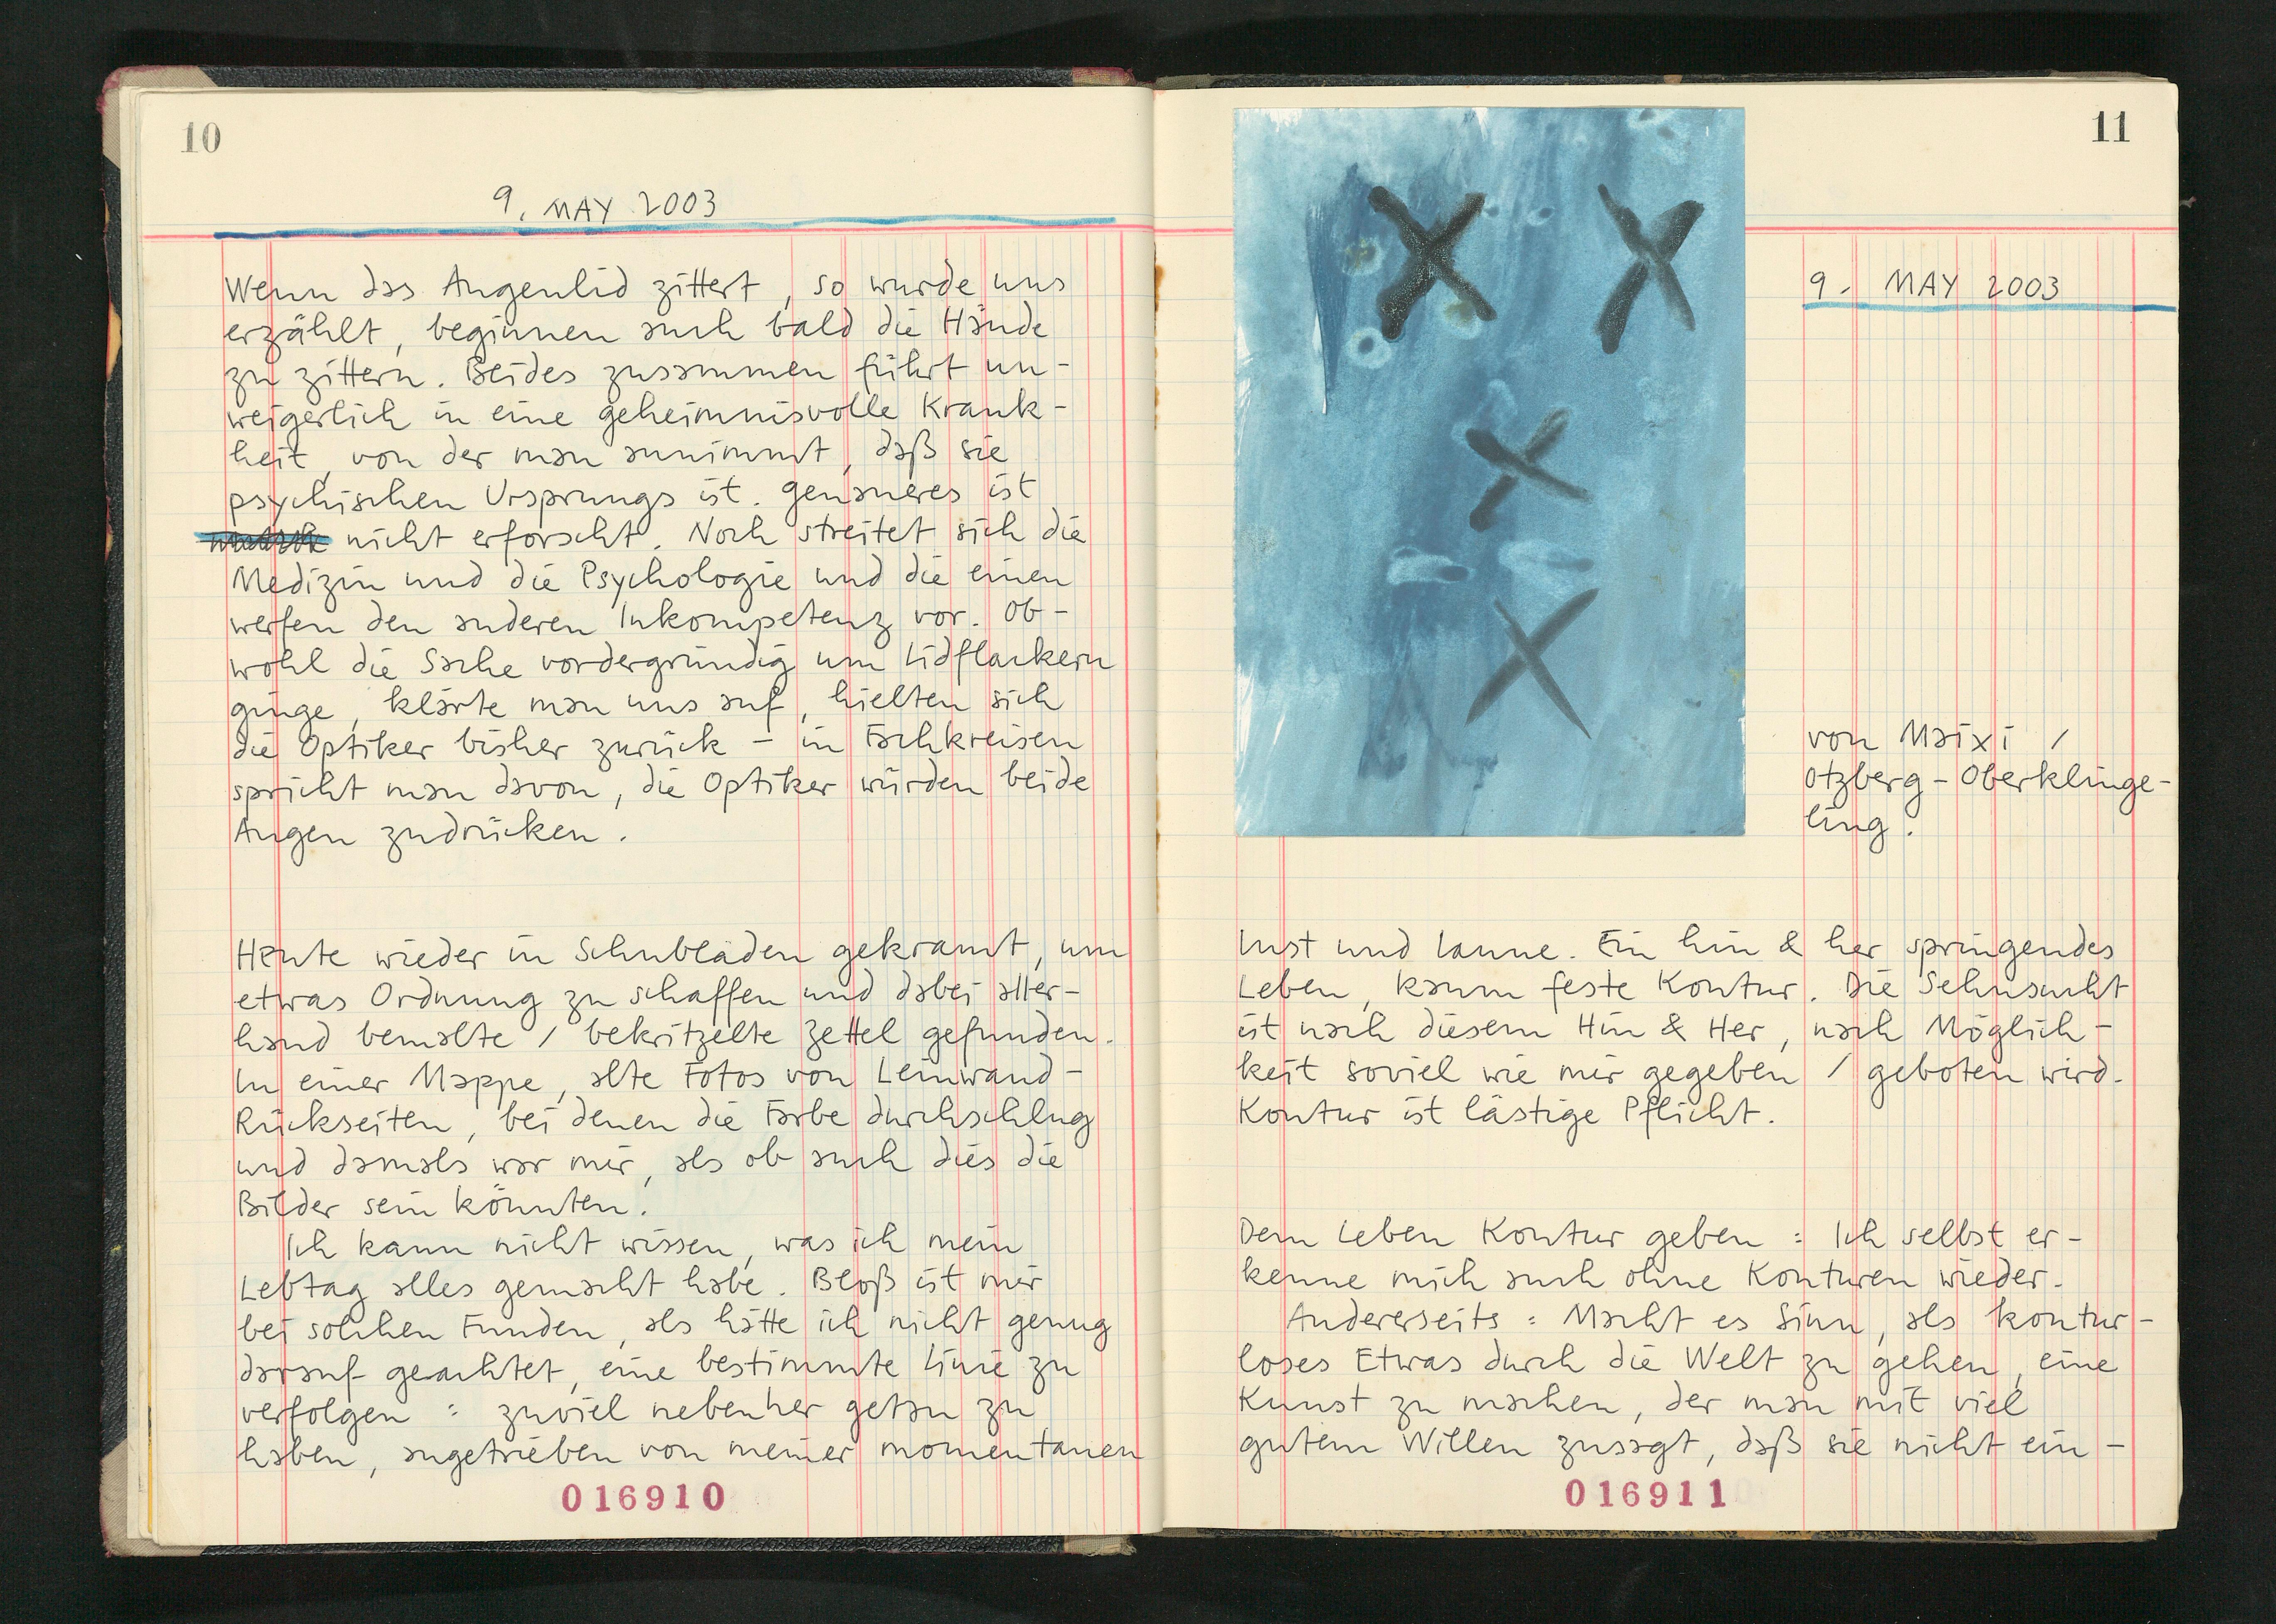 10
9. MAY 2003
Wenn das Augenlid zittert, so wurde uns
erzählt, beginnen auch bald die Hände
zu zittern. Beides zusammen führt un-
weigerlich in eine geheimnisvolle Krank-
heit, von der man annimmt, daß sie
psychischen Ursprungs ist. Genaueres ist
nicht erforscht. Noch streitet sich die
Medizin und die Psychologie und die einen
werfen den anderen Inkompetenz vor. Ob-
wohl die Sache vordergründig um Lidflackern
ginge, klärte man uns auf, hielten sich
die Optiker bisher zurück - in Fachkreisen
spricht man davon, die Optiker würden beide
Augen zudrücken.
Heute wieder in Schubladen gekramt, um
etwas Ordnung zu schaffen und dabei aller-
hand bemalte / bekritzelte Zettel gefunden.
In einer Mappe, alte Fotos von Leinwand-
Rückseiten, bei denen die Farbe durchschlug
und damals war mir, als ob auch dies die
Bilder sein könnten.
Ich kann nicht wissen, was ich mein
Lebtag alles gemacht habe. Bloß ist mir
bei solchen Funden, als hätte ich nicht genug
darauf geachtet, eine bestimmte Linie zu
verfolgen : zuviel nebenher getan zu
haben, angetrieben von meiner momentanen
016910
11
9. MAY 2003
von Maixi /
Otzberg - Oberklinge-
ling.
Lust und Laune. Ein hin & her springendes
Leben, kaum feste Kontur. Die Sehnsucht
ist nach diesem Hin & Her, nach Möglich-
keit soviel wie mir gegeben / geboten wird.
Kontur ist lästige Pflicht.
Dem Leben Kontur geben : Ich selbst er-
kenne mich auch ohne Konturen wieder.
Andererseits : Macht es Sinn, als kontur-
loses Etwas durch die Welt zu gehen, eine
Kunst zu machen, der man mit viel
gutem Willen zusagt, daß sie nicht ein-
016911